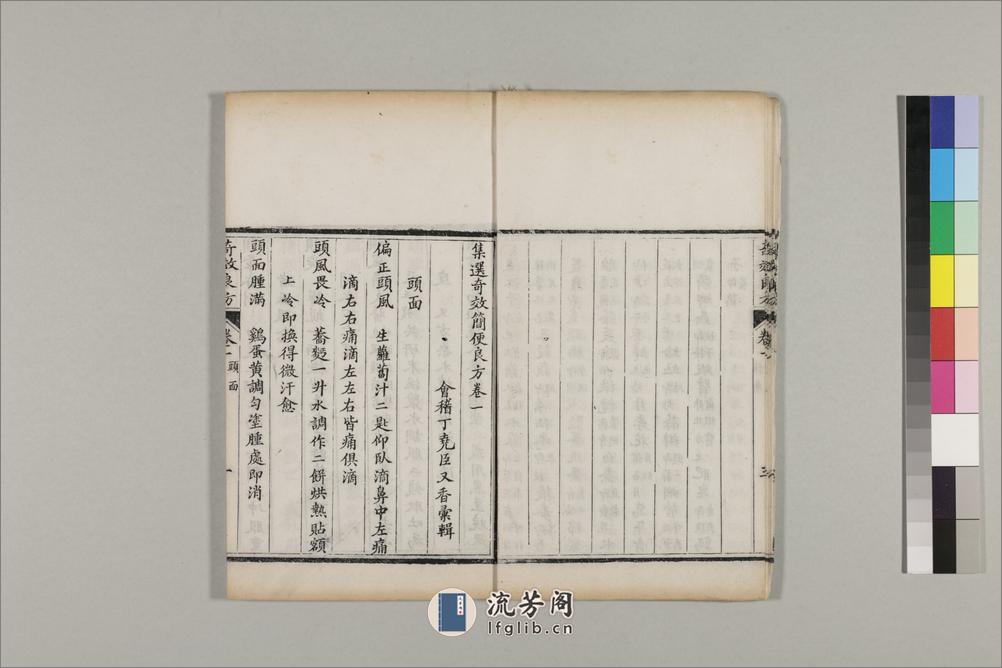 集選奇效簡便良方卷一
會稽丁堯臣又香彙輯
頭面
偏正頭風　生蘿蔔汁二匙仰臥滴鼻中左痛
滴右右痛滴左左右皆痛俱滴
頭風畏冷　蕎麪一升水調作二餅烘熱貼額
上冷即換得微汗愈
頭面腫滿　鷄蛋黃調勻塗腫處即消
奇效良方
卷一
頭面
一
流芳阁
lfglib.cn